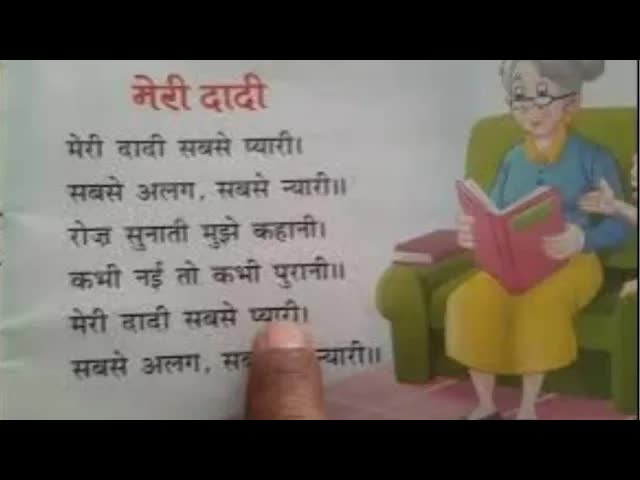 मेरी दादी
मेरी दादी सबसे प्यारी।
सबसे अलग, सबसे न्यारी॥
रोज़ सुनाती मुझे कहानी।
कभी नई तो कभी पुरानी॥
मेरी दादी सबसे प्यारी।
सबसे अलग, न्यारी॥